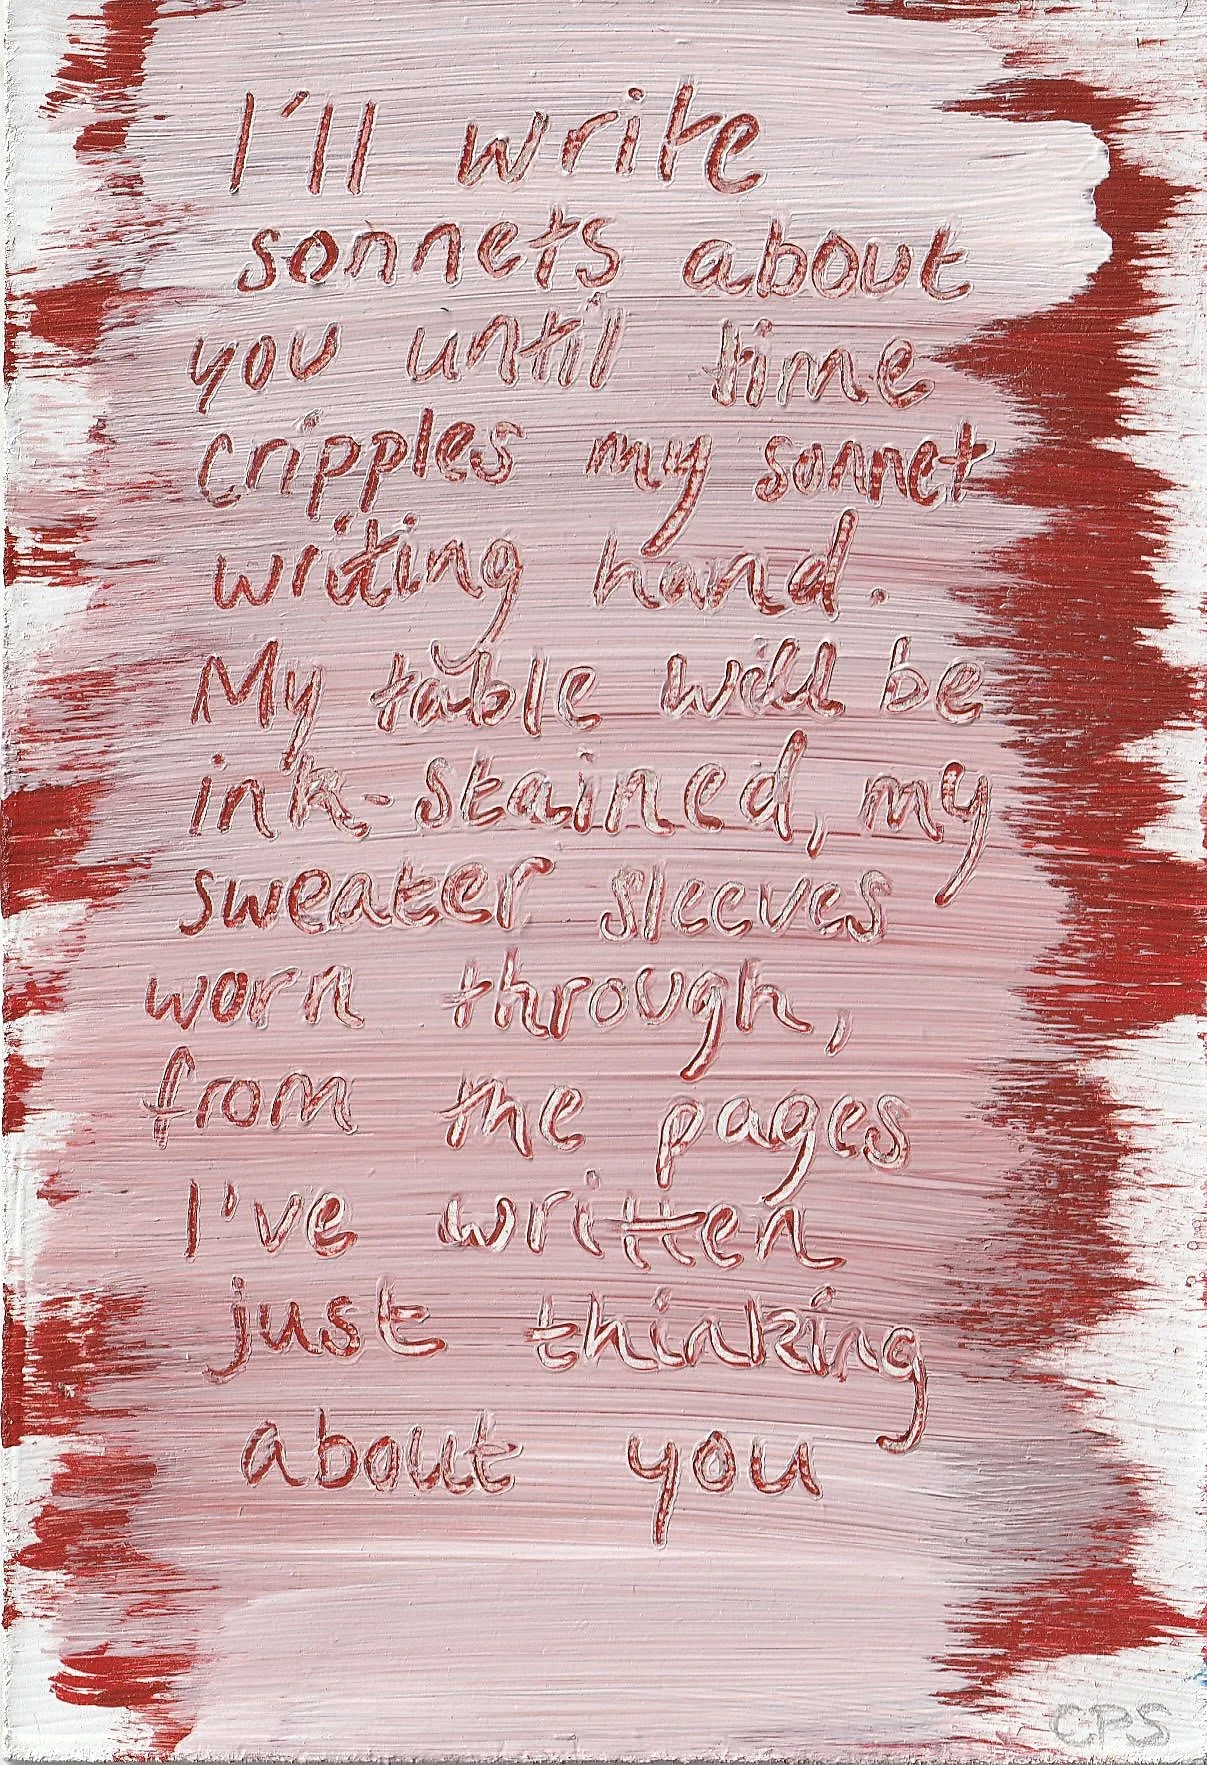 I'll write
sonnets about
you until time
cripples my sonnet
writing hand.
My table will be
ink-stained, my
sweater sleeves
worn through,
from the pages
I've written
just thinking
about you
CPS